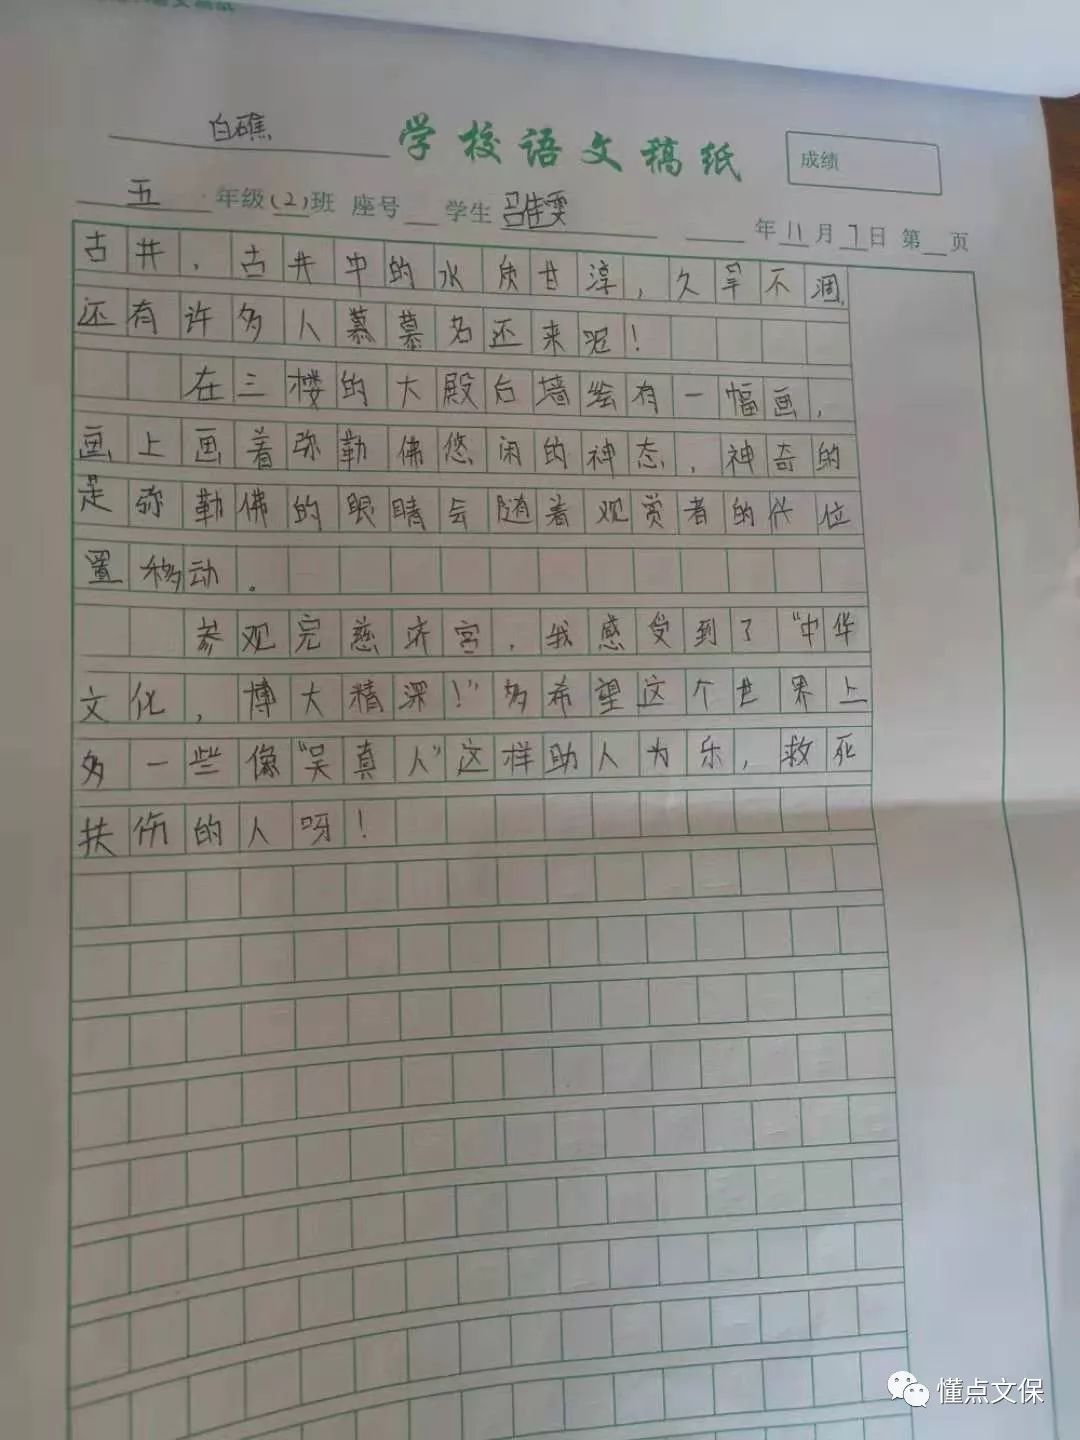 白礁 学校语文稿纸 成绩
五 年级(2)班 座号 学生 吕佳雯 年11月7日 第 页
古井，古井中的水质甘淳，久旱不涸，
还有许多人慕慕名还来呢！
在三楼的大殿后墙绘有一幅画，
画上画着弥勒佛悠闲的神态，神奇的
是弥勒佛的眼睛会随着观赏者的位
置移动。
参观完慈济宫，我感受到了“中华
文化，博大精深！”多希望这个世界上
多一些像“吴真人”这样助人为乐，救死
扶伤的人呀！
懂点文保